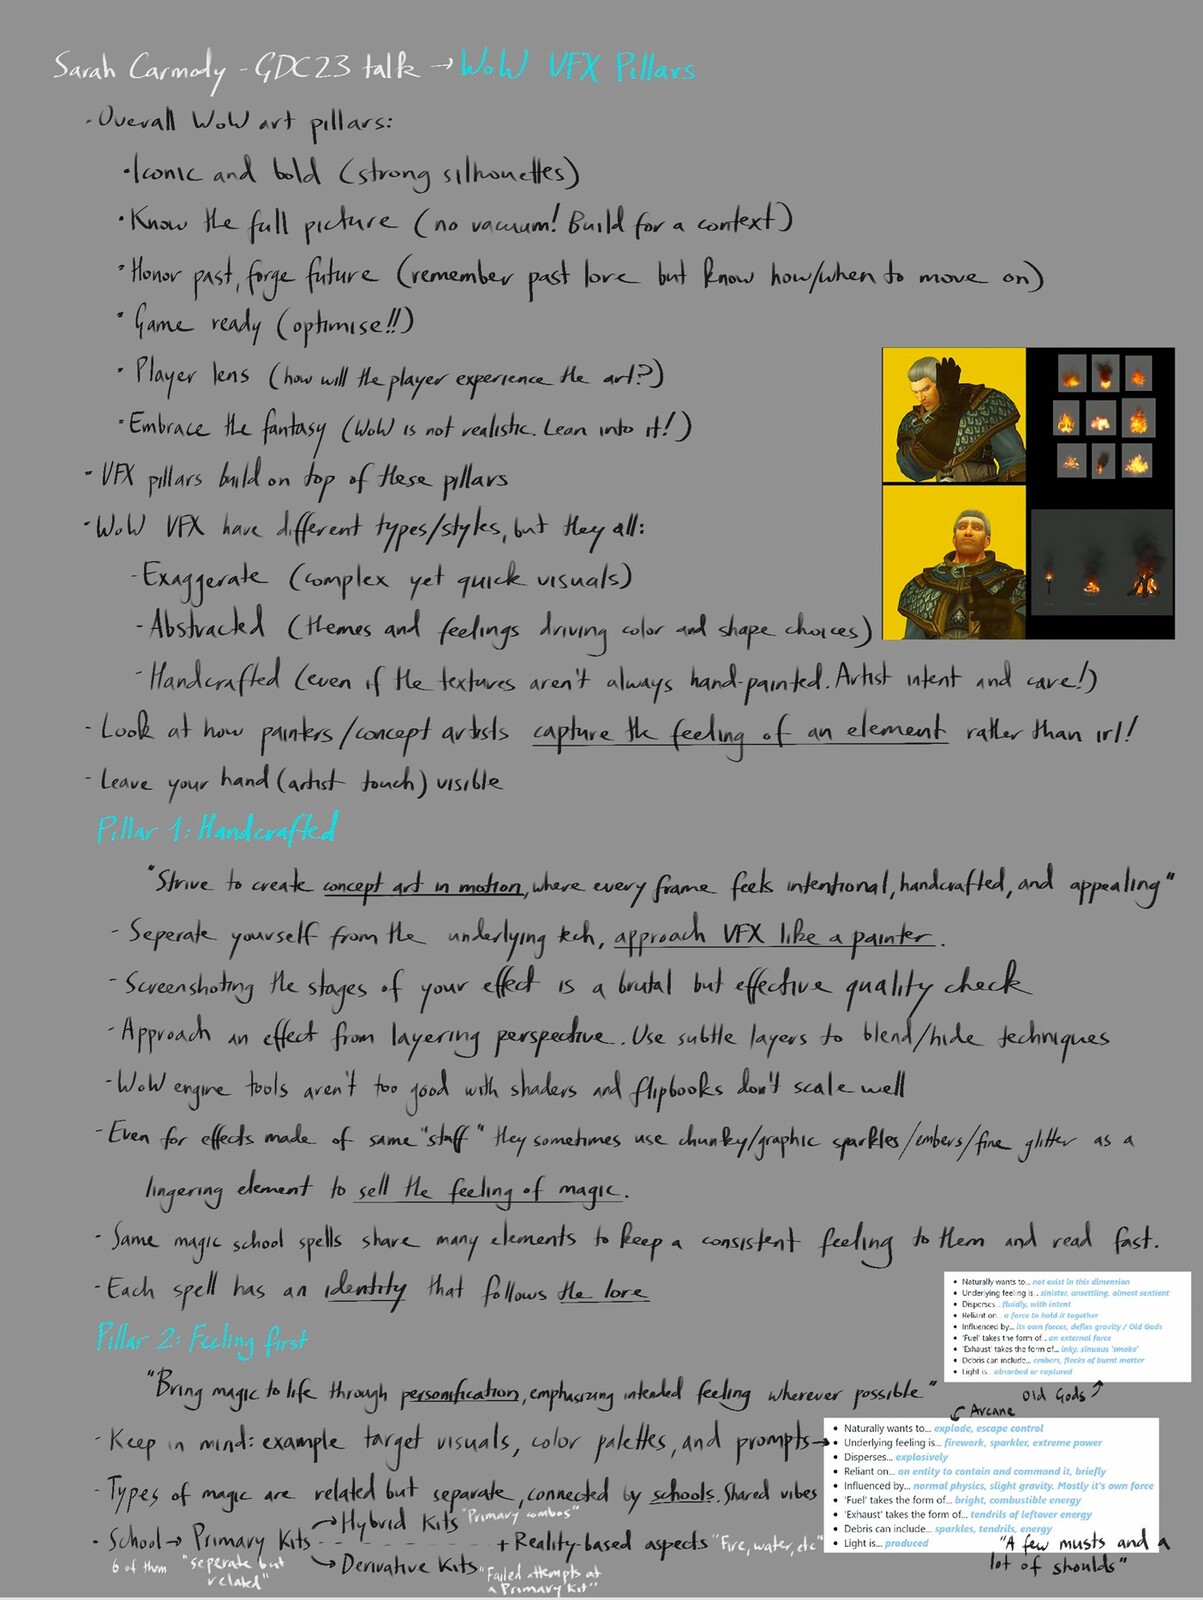 Sarah Carmody - GDC23 talk → WoW VFX Pillars
- Overall WoW art pillars:
• Iconic and bold (strong silhouettes)
• Know the full picture (no vacuum! Build for a context)
• Honor past, forge future (remember past lore but know how/when to move on)
• Game ready (optimise!!)
• Player lens (how will the player experience the art?)
• Embrace the fantasy (WoW is not realistic. Lean into it!)
- VFX pillars build on top of these pillars
- WoW VFX have different types/styles, but they all:
- Exaggerate (complex yet quick visuals)
- Abstracted (themes and feelings driving color and shape choices)
- Handcrafted (even if the textures aren't always hand-painted. Artist intent and care!)
- Look at how painters/concept artists capture the feeling of an element rather than irl!
- Leave your hand (artist touch) visible
Pillar 1: Handcrafted
"Strive to create concept art in motion, where every frame feels intentional, handcrafted, and appealing"
- Seperate yourself from the underlying tech, approach VFX like a painter.
- Screenshoting the stages of your effect is a brutal but effective quality check
- Approach an effect from layering perspective. Use subtle layers to blend/hide techniques
- WoW engine tools aren't too good with shaders and flipbooks don't scale well
- Even for effects made of same "stuff" they sometimes use chunky/graphic sparkles/embers/fine glitter as a
lingering element to sell the feeling of magic.
- Same magic school spells share many elements to keep a consistent feeling to them and read fast.
- Each spell has an identity that follows the lore
• Naturally wants to... not exist in this dimension
• Underlying feeling is... sinister, unsettling, almost sentient
• Disperses... fluidly, with intent
• Reliant on... a force to hold it together
• Influenced by... its own forces, defies gravity / Old Gods
• 'Fuel' takes the form of... an external force
• 'Exhaust' takes the form of... inky, sinuous 'smoke'
• Debris can include... embers, flecks of burnt matter
• Light is... absorbed or captured
Old Gods
Pillar 2: Feeling first
"Bring magic to life through personification, emphasizing intended feeling wherever possible"
- Keep in mind: example target visuals, color palettes, and prompts →
Arcane
• Naturally wants to... explode, escape control
• Underlying feeling is... firework, sparkler, extreme power
• Disperses... explosively
• Reliant on... an entity to contain and command it, briefly
• Influenced by... normal physics, slight gravity. Mostly it's own force
• 'Fuel' takes the form of... bright, combustible energy
• 'Exhaust' takes the form of... tendrils of leftover energy
• Debris can include... sparkles, tendrils, energy
• Light is... produced
"A few musts and a
lot of shoulds"
- Types of magic are related but separate, connected by schools. Shared vibes
• School → Primary Kits → Hybrid Kits "Primary combos"
→ Derivative Kits "Failed attempts at
a Primary Kit"
+ Reality-based aspects "Fire, water, etc"
6 of them "seperate but
related"